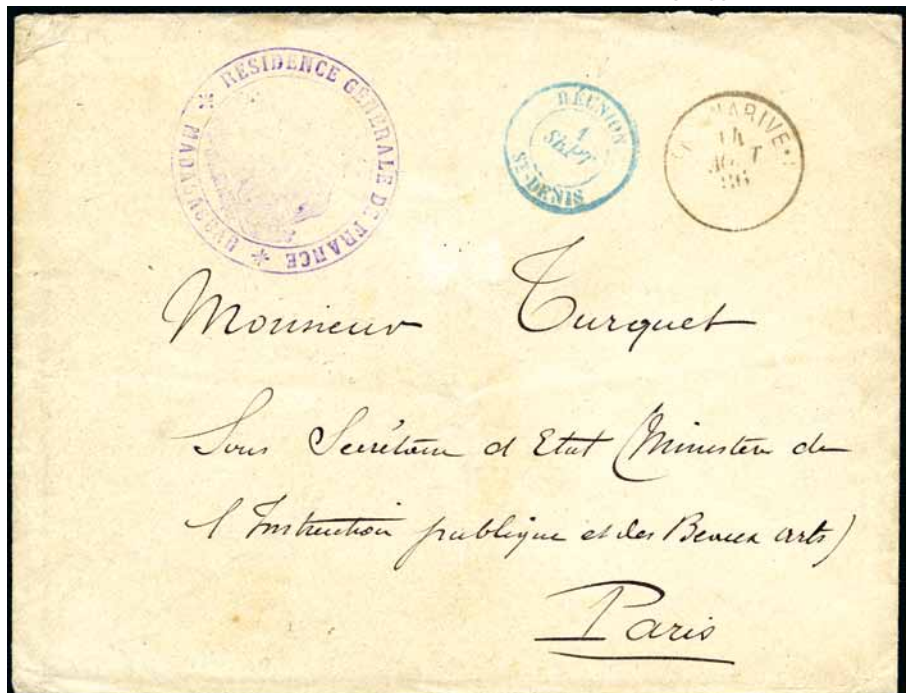 RESIDENCE GÉNÉRALE DE FRANCE * MADAGASCAR *
RÉUNION
1
SEPT
ST-DENIS
NARIVE
14
86
Monsieur Turquet
Sous Secrétaire d Etat (Ministère de
l Instruction publique et des Beaux arts)
Paris